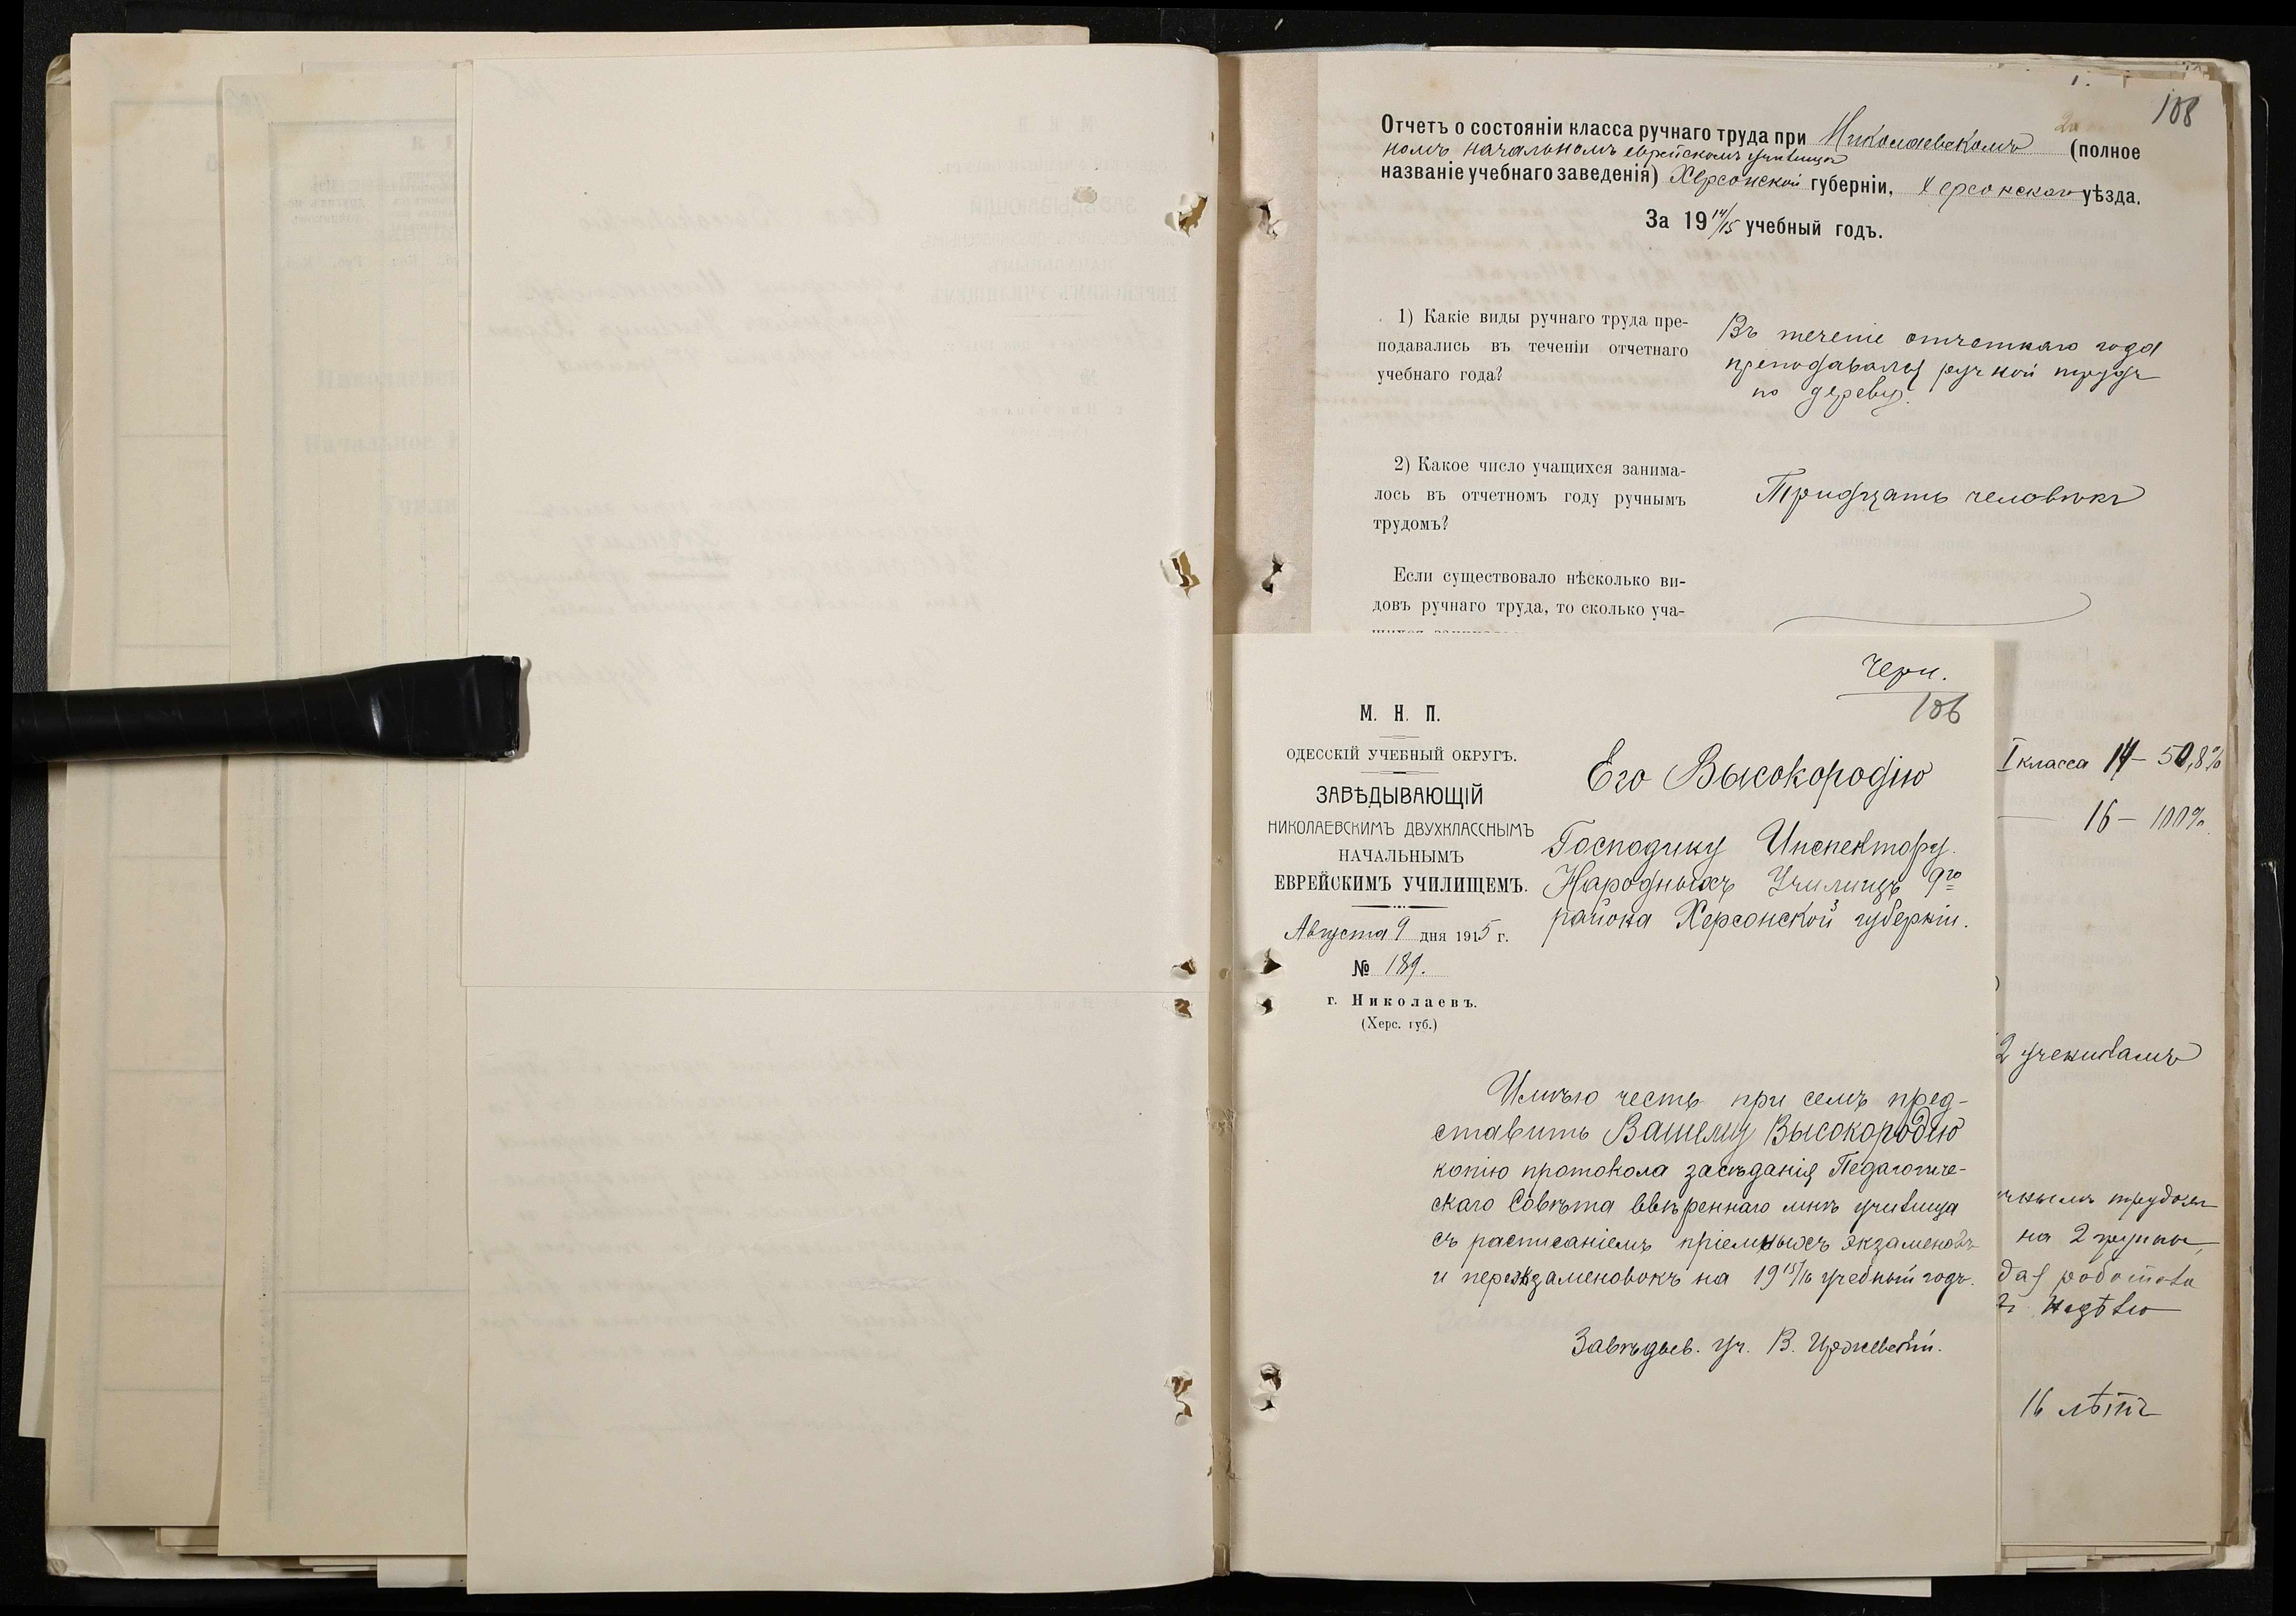 108
Отчетъ о состояніи класса ручнаго труда при Николаевскомъ 2х
номъ начальномъ еврейскомъ училищѣ (полное
названіе учебнаго заведенія) Херсонской губерніи, Херсонскаго уѣзда.
За 1914/15 учебный годъ.
1) Какіе виды ручнаго труда пре-
подавались въ теченіи отчетнаго
учебнаго года?
Въ теченіе отчетнаго года
преподавался ручной трудъ
по дереву.
2) Какое число учащихся занима-
лось въ отчетномъ году ручнымъ
трудомъ?
Тридцать человѣкъ
Если существовало нѣсколько ви-
довъ ручнаго труда, то сколько уча-
Черн.
106
М. Н. П.
ОДЕССКІЙ УЧЕБНЫЙ ОКРУГЪ.
ЗАВѢДЫВАЮЩІЙ
НИКОЛАЕВСКИМЪ ДВУХКЛАССНЫМЪ
НАЧАЛЬНЫМЪ
ЕВРЕЙСКИМЪ УЧИЛИЩЕМЪ.
Августа 9 дня 1915 г.
№ 189.
г. Николаевъ.
(Херс. губ.)
Его Высокородію
Господину Инспектору
Народныхъ Училищъ 9го
района Херсонской губерніи.
Имѣю честь при семъ пред-
ставить Вашему Высокородію
копію протокола засѣданія Педагогиче-
скаго Совѣта ввѣреннаго мнѣ училища
съ расписаніемъ пріемныхъ экзаменовъ
и переэкзаменовокъ на 1915/16 учебный годъ.
Завѣдыв. уч. В.
I класса 14 – 50,8%
16 – 100%
2 ученикамъ
трудомъ
на 2 группы,
работала
недѣлю
16 лѣтъ